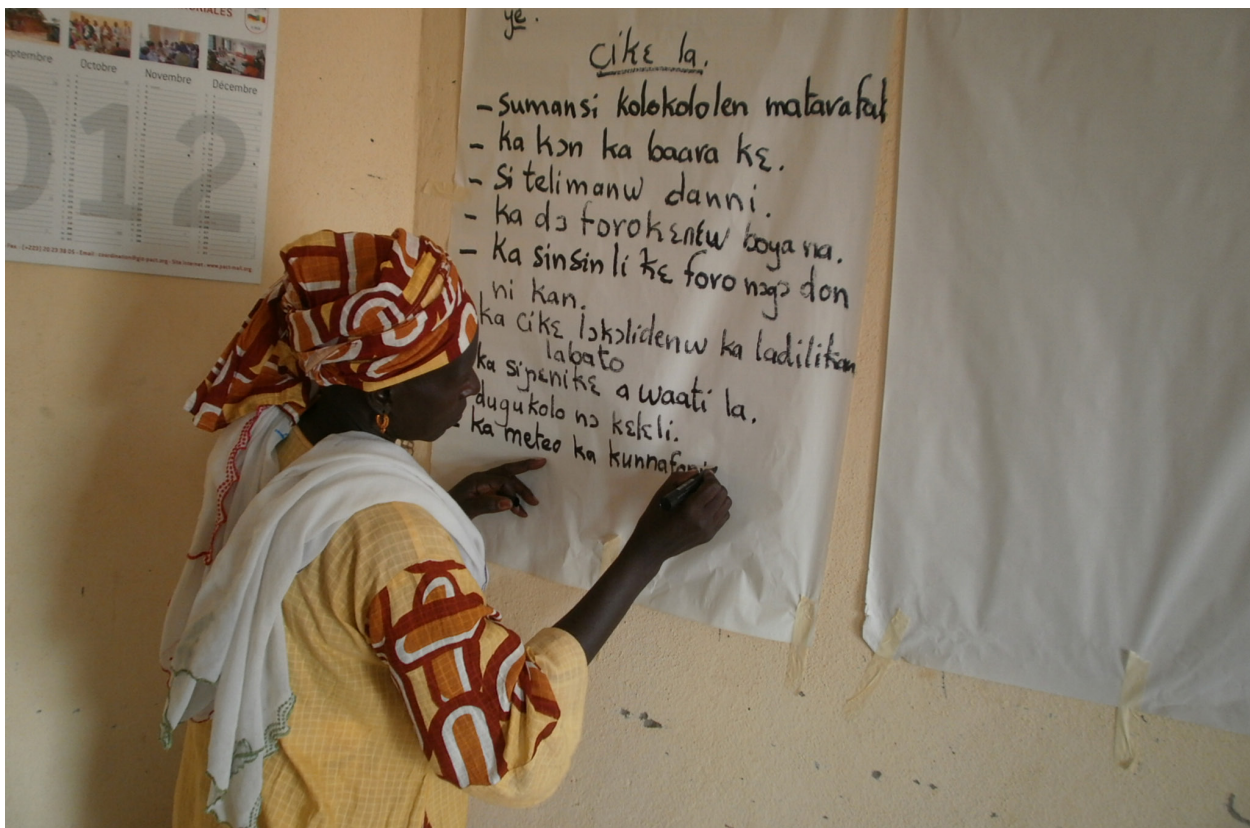 ORIALES
eptembre
Octobre
Novembre
Décembre
012
ye.
Cikɛ la.
- sumansi kolokololen matarafali
- ka kɔn ka baara kɛ.
- Si telimanw danni.
- ka dɔ forokɛntw boya na.
- Ka sinsin li kɛ foro nɔgɔ don
ni kan.
ka cikɛ lɔkɔlidenw ka ladilikan
labato
ka siɲɛnikɛ a waati la.
dugukolo nɔ kɛkɛli.
- ka meteo ka